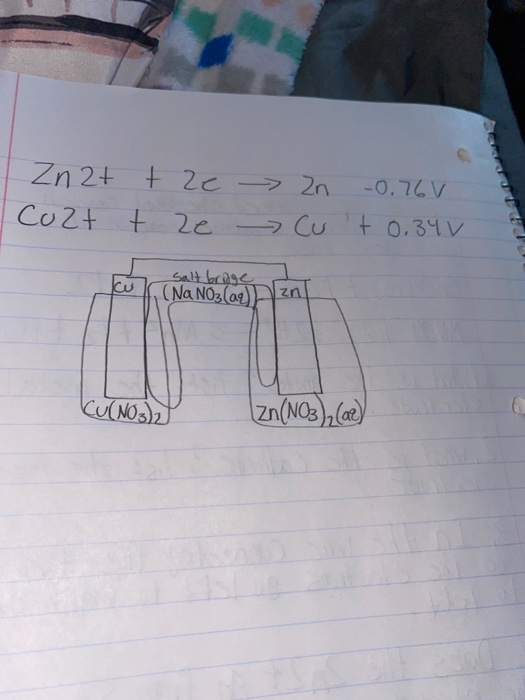 Zn2+ + 2e → Zn -0.76V
Cu2+ + 2e → Cu + 0.34V
salt bridge
Cu (NaNO3(aq) Zn
Cu(NO3)2 Zn(NO3)2(aq)